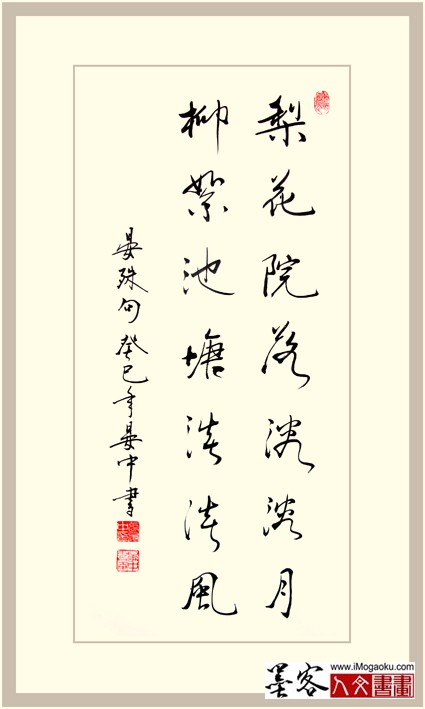 梨花院落溶溶月
柳絮池塘淡淡風
晏殊句 癸巳年晏中書
墨客
www.iMogaoku.com
人文書畫